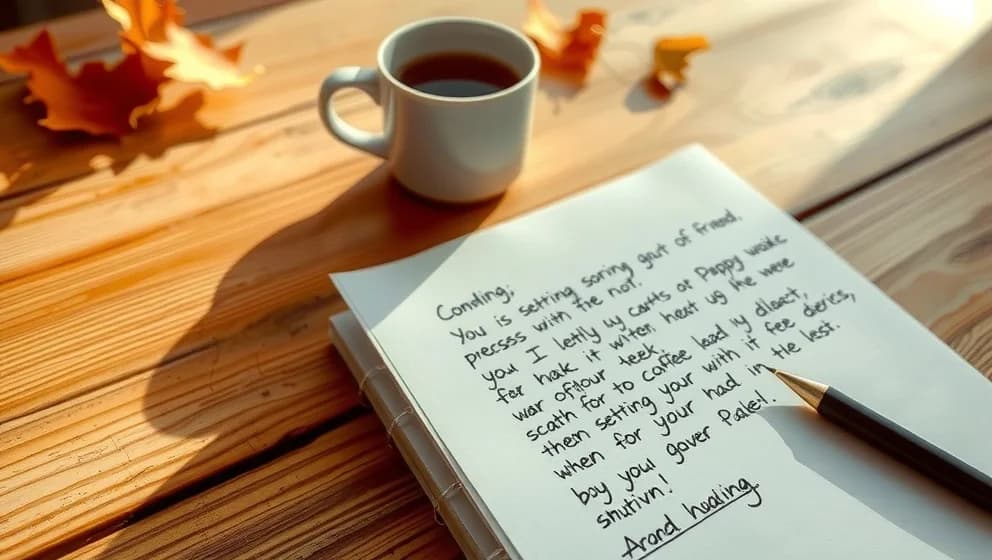 Conding;
You is setting soring grut of friend,
precsss with the not.
you I letly uy carfts or Pappy wolk
for hak it witen. heat ug the were
war offlour teek.
scath for to caffee lead ny dlact,
then setting your with it fee derics,
when for your had in the lest.
boy youl gover Palel.
shutivn!
Arond healing